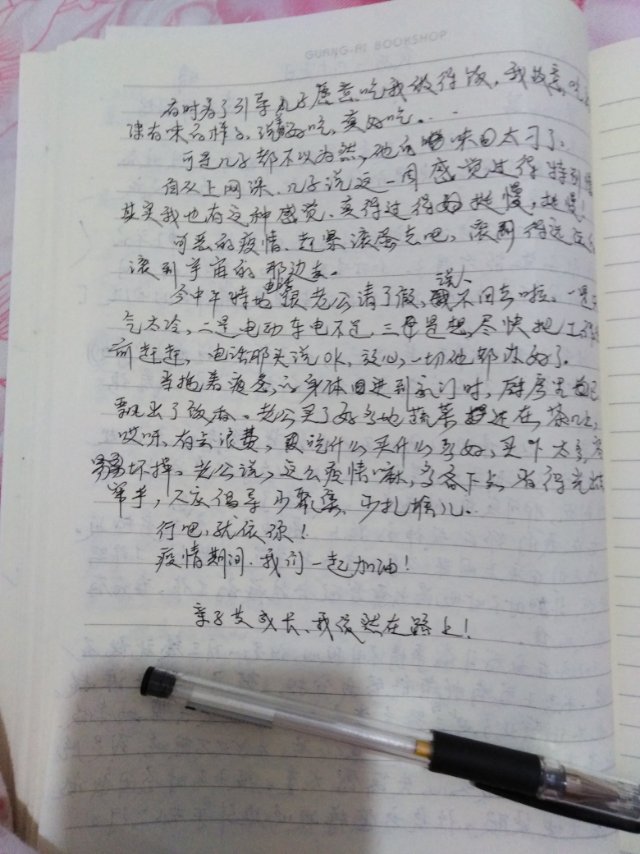 GUANG-RI BOOKSHOP
有时为了引导儿子愿意吃我做得饭,我故意吃
津有味的样子,说好吃,真好吃。..
可是儿子都不以为然,他的味口太刁了。
自从上网课,儿子说这一周感觉过得特别
其实我也有这种感觉,变得过得好挺慢,挺慢!
可恶的疫情,赶紧滚蛋去吧,滚到得远
滚到宇宙的那边去。
今中午特地跟老公请了假,说人不回去啦,一是天
气太冷,二是电动车电不足,三是想尽快把工
前赶赶,电话那头说OK,放心,一切他都办好了。
当拖着疲惫的身体回进到家门时,厨房里
飘出了饭香。老公买了好多地蔬菜还在茶几上,
哎呀,有点浪费,要吃什么买什么多好,买下太多
坏掉。老公说,这么疫情嘛,多备下点,省得光
举手,又应倡导少聚集、少扎堆儿。
行吧,就依你!
疫情期间,我们一起加油!
亲子共成长,我依然在路上!